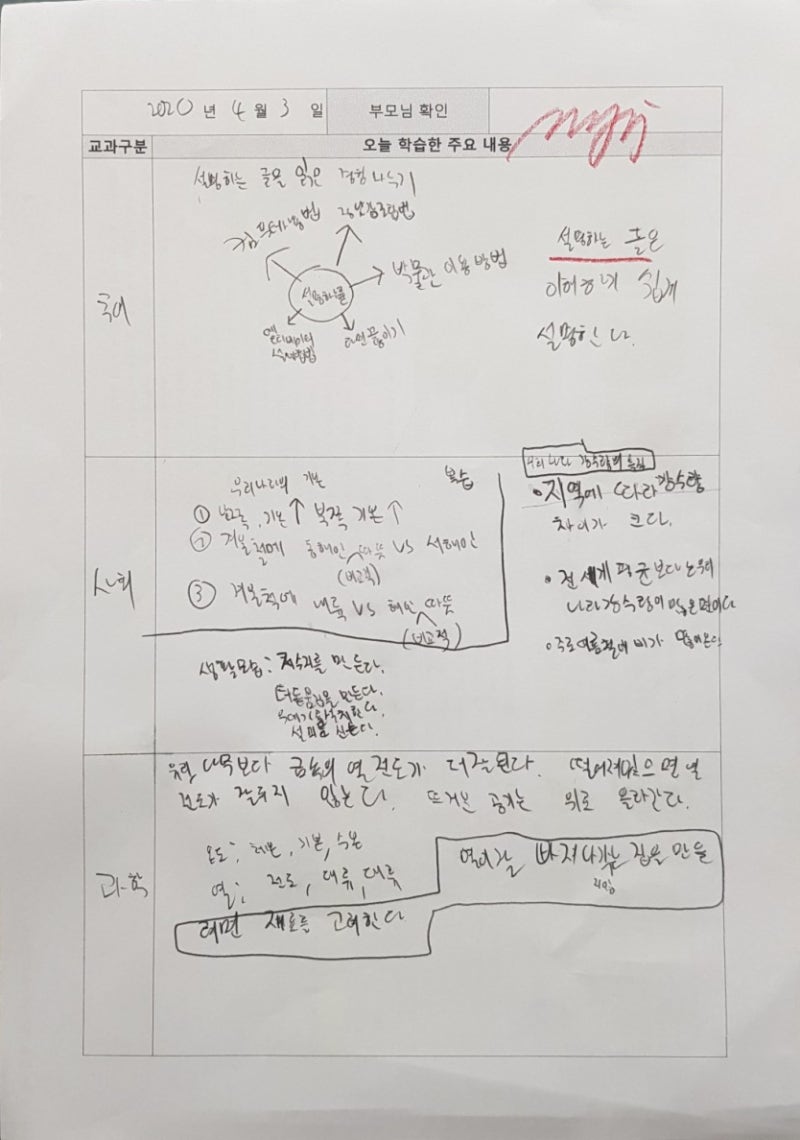 2020 년 4 월 3 일 부모님 확인
교과구분 오늘 학습한 주요 내용
국어
설명하는 글을 읽은 경험 나누기
컴퓨터사용법
설명하는글
박물관 이용 방법
라면끓이기
설명하는 글은
이해하기 쉽게
설명한다.
사회
우리나라의 기온
복습
① 남쪽, 기온↑ 북쪽 기온↑
② 겨울철에 동해안 따뜻 VS 서해안
(비교적)
③ 겨울철에 내륙 VS 해안 따뜻
(비교적)
우리나라 강수량의 특징
•지역에 따라 강수량
차이가 크다.
• 전 세계 평균보다 우리
나라 강수량이 많은 편이다
• 주로 여름철에 비가
생활모습: 저수지를 만든다.
터돋움집을 만든다.
설피를 신는다.
과학
나무보다 금속의 열 전도가 더 잘 된다. 떨어져있으면 열
전도가 잘 되지 않는다. 뜨거운 공기는 위로 올라간다.
온도; 체온, 기온, 수온
열; 전도, 대류, 대류
열이 잘 빠져나가는 집을 만들
려면 재료를 고려한다